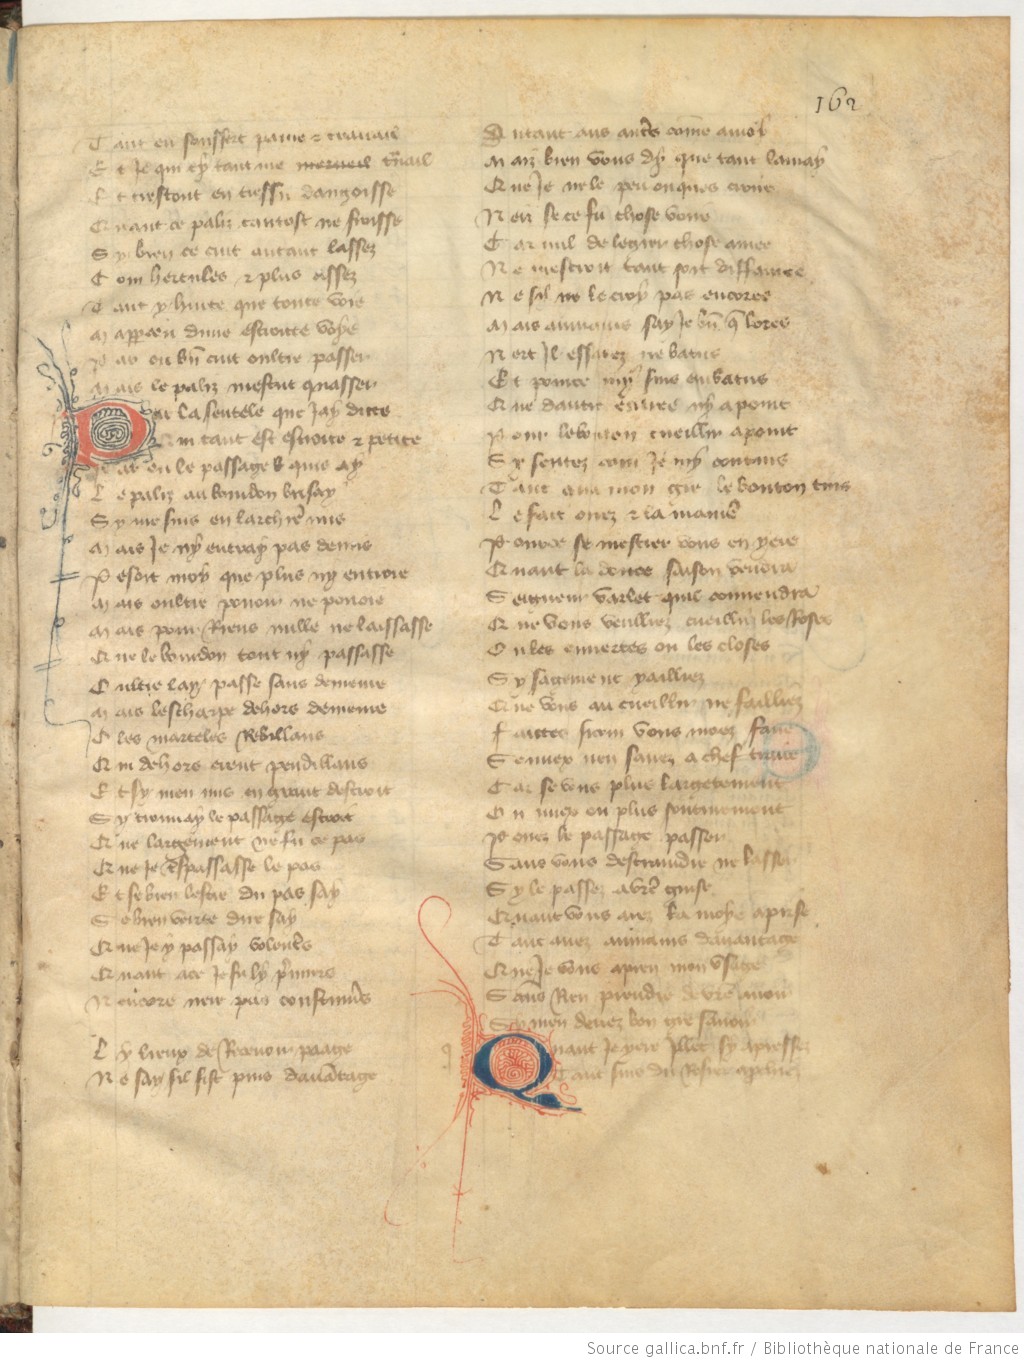 162
Tant en souffert paine & travail
Et je qui ty tant me merueil tũail
Et trestout en tressu dangoisse
Quant ce paliz tantost ne froisse
Sy bien ce cuit autant lassez
Com hercules & plus assez
Tant y hurte que toute voie
Mapparceu dune estroitte voye
Par ou bñ cuit oultre passer
Mais le paliz mestut quasser
Par la sentele que jay dicte
Qui tant est estroite & petite
Par ou le passage quis ay
Le paliz au bourdon brisay
Sy me suis en larchiere mis
Mais je ny entray pas demis
Pesoit moy que plus ny entroie
Mais oultre pouoir ne pouoie
Mais pour Riens nulle ne laissasse
Que le bourdon tout ny passasse
Oultre lay passe sans demeure
Mais lescharpe dehors demeure
O les marteles Rebillans
Qui dehors erent pendillans
Et sy men mis en grant destroit
Sy trouuay le passage estroit
Que largement ne fu ce pas
Que je trespassasse le pas
Et se bien lestre du pas say
Se bien voirte dire say
Que je y passay
Quant
Nencore
Ly lieux de Receuoir paage
Ne say sil fist puis dauãtage
Autant aus autres comme a moy
Maiz bien vous dy que tant lamay
Que je ne le peu onques croire
Neis se ce fu chose voire
Car nul de legier chose amee
Ne mescroit tant soit diffamee
Ne sil ne le croy pas encores
Mais aumains say je bñ q̃ lores
Nert il essarez ne batus
Et pource my suis embatus
Que dautre entree ny a point
Pour le bouton cueillir a point
Sy sentez com je my contins
Tant qua mon gre le bouton tins
Le fait orrez & la maniere
Pource se mestier vous en yere
Quant la douce saison vendra
Seigneur varlet quil conuendra
Que vous veulliez cueillir les Roses
Ou les ouuertes ou les closes
Sy sagement y ailliez
Que vous au cueillir ne failliez
Faictes sicom vous morez faire
Se mieux nen sauez a chef traire
Car se vous plus largetement
Ou miex ou plus soutiuement
Pouez le passage passer
Sans vous destraindre ne lasser
Sy le passez a vr̃e guise
Quant vous arez la moye aprise
Tant auez aumains dauantage
Que je vous apren mon vsage
Sans Ren prendre de vr̃e auoir
Sy men deuez bon gre sauoir
Quant je yere illec sy apressez
Tant fuis du Rosier